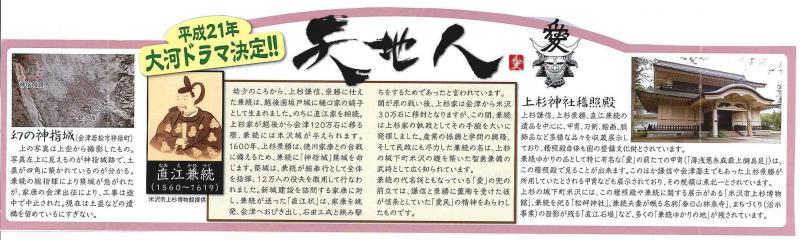 平成21年
大河ドラマ決定!!
天地人
愛
愛
神指城跡
幻の神指城(会津若松市神指町)
上の写真は上空から撮影したもの。
写真左上に見えるのが神指城跡で、土
塁が四角に築かれているのが分かる。
兼続の総指揮により築城が急がれた
が、家康の会津出征により、工事は途
中で中止された。現在は土塁などの遺
構を留めているにすぎない。
なおえかねつぐ
直江兼続
(1560~1619)
米沢市上杉博物館提供
幼少のころから、上杉謙信、景勝に仕え
た兼続は、越後国坂戸城に樋口家の嫡子
として生まれました。のちに直江家を相続。
上杉家が越後から会津120万石に移る
際、兼続には米沢城が与えられます。
1600年、上杉景勝は、徳川家康との合戦
に備えるため、兼続に「神指城」築城を命じ
ます。築城は、兼続が総奉行として全体
を指揮、12万人の役夫を徴用して行なわ
れました。新城建設を詰問する家康に対
し、兼続が送った「直江状」は、家康を挑
発、会津へおびき出し、石田三成と挟み撃
ちをするためであったと言われています。
関が原の戦い後、上杉家は会津から米沢
30万石に移封となりますが、この間、兼続
は上杉家の執政としてその手腕を大いに
発揮しました。産業の振興と学問の奨励、
そして民政にも尽力した兼続の名は、上杉
の城下町米沢の礎を築いた智勇兼備の
武将として広く知られています。
兼続の代名詞ともなっている「愛」の兜の
前立ては、謙信と景勝に薫陶を受けた彼
が信条としていた「愛民」の精神をあらわし
たものです。
上杉神社稽照殿
上杉謙信、上杉景勝、直江兼続の
遺品を中心に、甲冑、刀剣、絵画、服
飾品など多様な品々を収蔵展示し
ており、稽照殿自体も国の登録文化財とされています。
兼続ゆかりの品として特に有名な「愛」の前たての甲冑(「薄浅葱糸威最上胴具足」)は、
この稽照殿で見ることが出来ます。このほか謙信や会津藩主でもあった上杉景勝が
所用していたとされる甲冑なども展示されており、その規模は東北一とされています。
上杉の城下町米沢には、この稽照殿や兼続に関する展示がある「米沢市上杉博物
館」、兼続を祀る「松岬神社」、兼続夫妻が眠る名刹「春日山林泉寺」、まちづくり(治水
事業)の面影が残る「直江石堤」など、多くの「兼続ゆかりの地」が残されています。